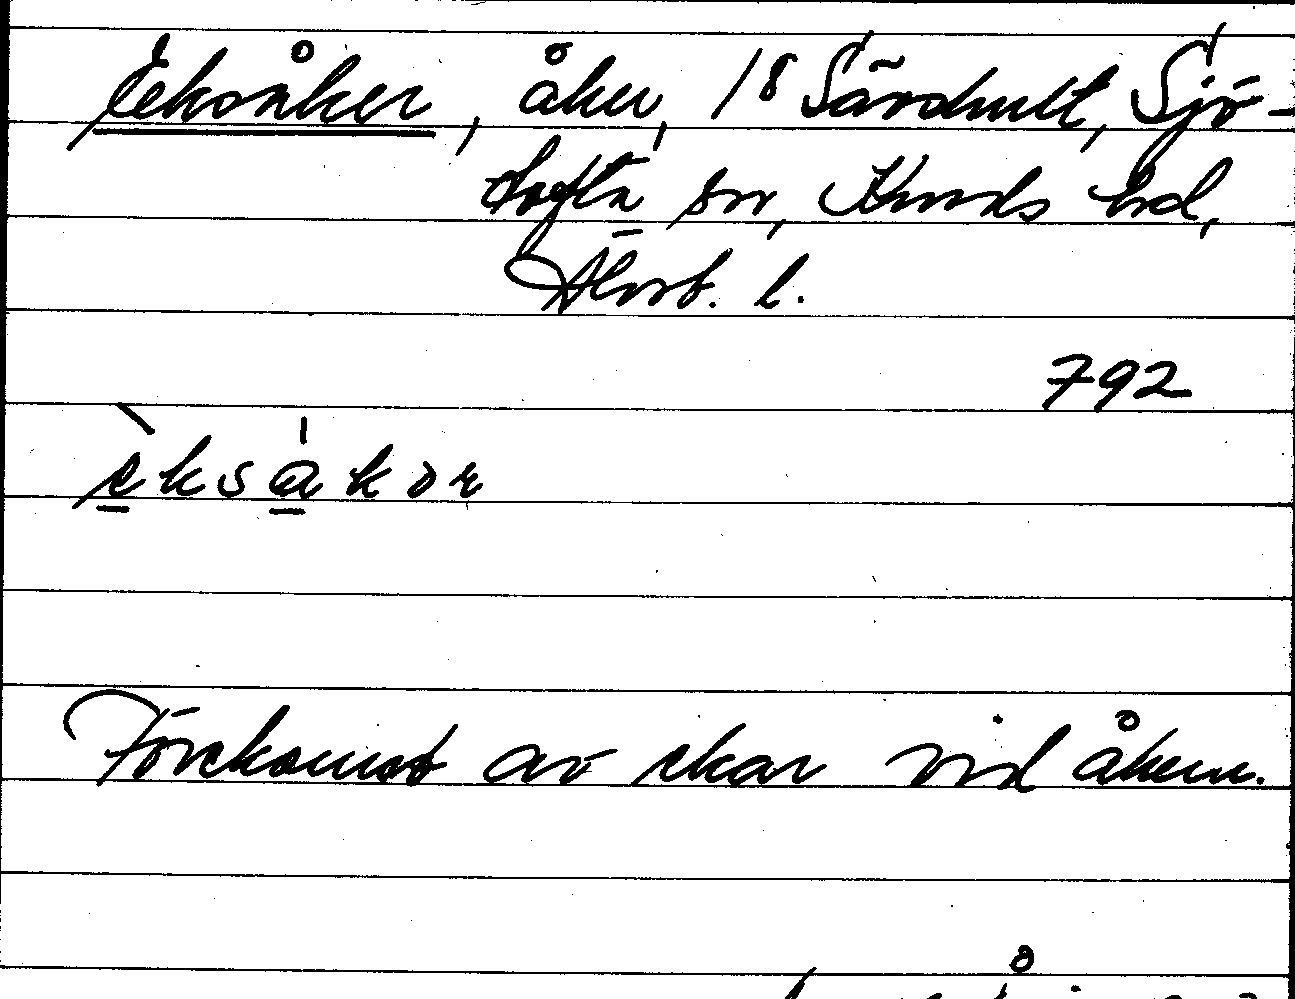 Eeksåker, åker, 18 Särdhult, Sjö-
tofta sn, Kinds hd,
Älvsb. l.
792
eksakər
Förekomst av ekar vid åkern.